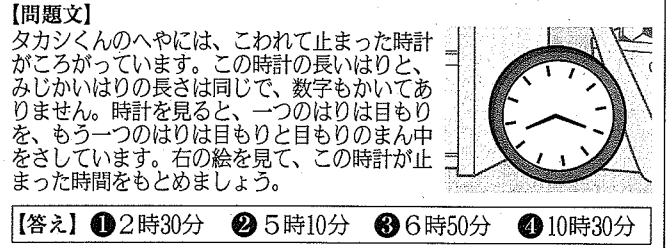 【問題文】
タカシくんのへやには、こわれて止まった時計
がころがっています。この時計の長いはりと、
みじかいはりの長さは同じで、数字もかいてあ
りません。時計を見ると、一つのはりは目もり
を、もう一つのはりは目もりと目もりのまん中
をさしています。右の絵を見て、この時計が止
まった時間をもとめましょう。
【答え】❶2時30分 ❷5時10分 ❸6時50分 ❹10時30分